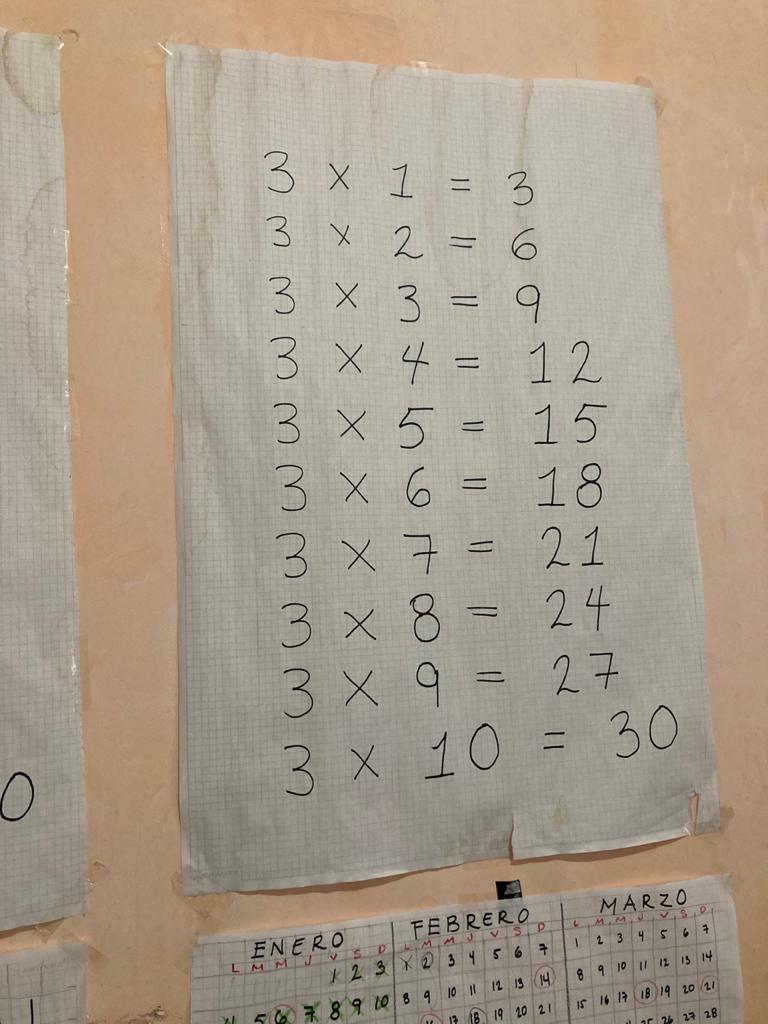 3 x 1 = 3
3 x 2 = 6
3 x 3 = 9
3 x 4 = 12
3 x 5 = 15
3 x 6 = 18
3 x 7 = 21
3 x 8 = 24
3 x 9 = 27
3 x 10 = 30
0
ENERO
L M M J V S D
1 2 3
4 5 6 7 8 9 10
FEBRERO
L M M J V S D
1 2 3 4 5 6 7
8 9 10 11 12 13 14
17 18 19 20 21
MARZO
L M M J V S D
1 2 3 4 5 6 7
8 9 10 11 12 13 14
15 16 17 18 19 20 21
25 26 27 28